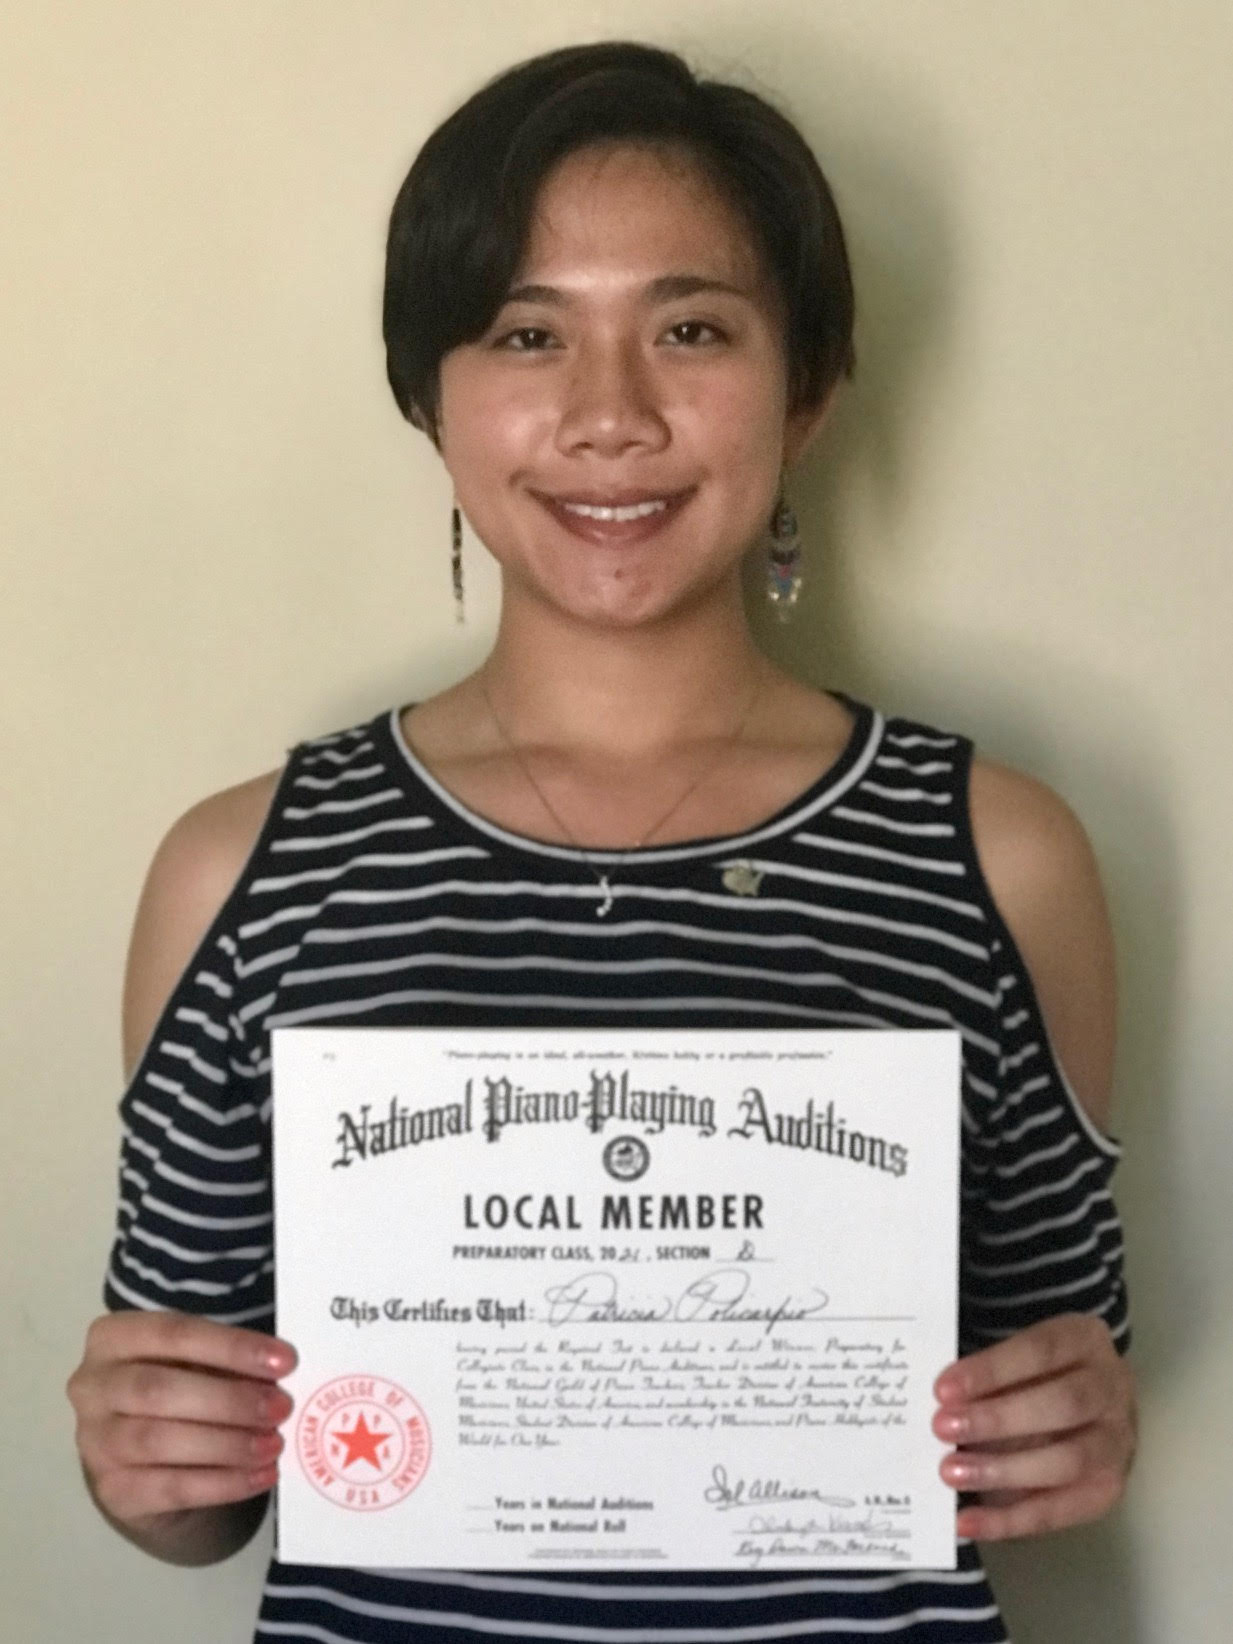 "Piano-playing is an ideal, all-weather, lifetime hobby or a profitable profession."
National Piano-Playing Auditions
LOCAL MEMBER
PREPARATORY CLASS, 2021, SECTION D
This Certifies That: Patricia Policarpio
having passed the Required Test is declared a Local Winner, Preparatory for
Collegiate Class, in the National Piano Auditions, and is entitled to receive this certificate
from the National Guild of Piano Teachers, Teacher Division of American College of
Musicians, United States of America, and membership in the National Fraternity of Student
Musicians, Student Division of American College of Musicians, and Piano Hobbyists of the
World for One Year.
AMERICAN COLLEGE OF MUSICIANS
USA
Years in National Auditions
Years on National Roll
Allison